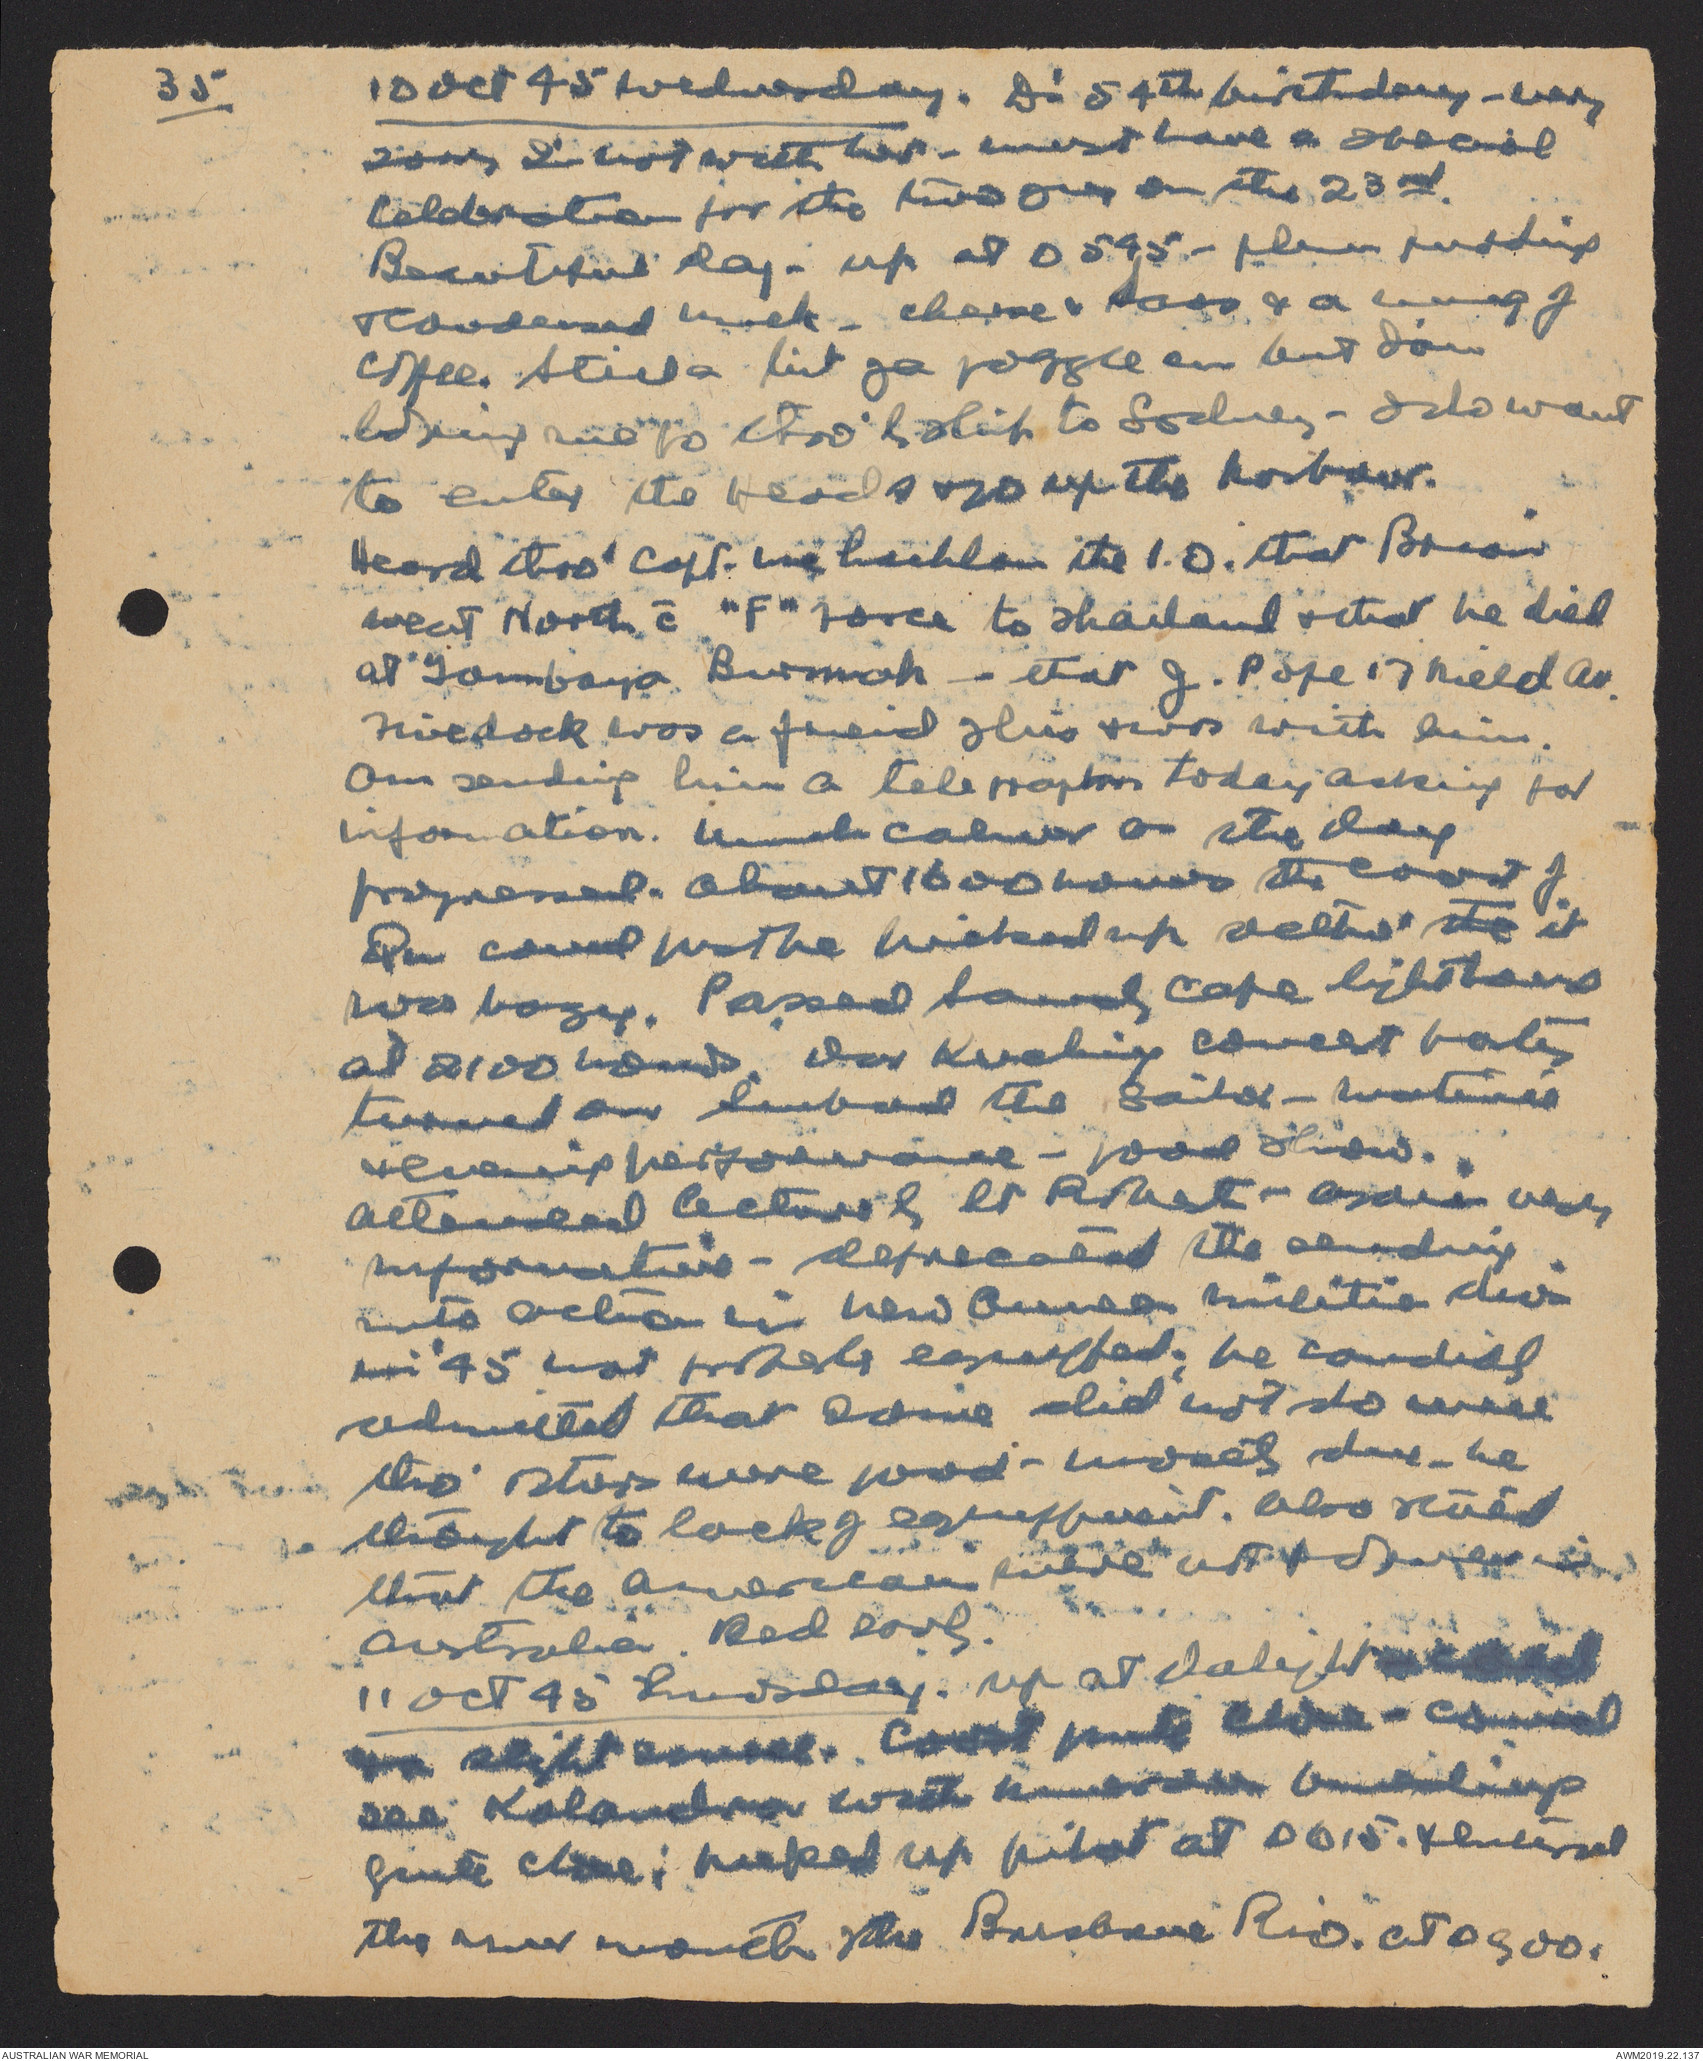 35
10 Oct 45 Wednesday. Di's 54th birthday - very
sorry I'm not with her - must have a special
celebration for the two of us on the 23rd.
Beautiful day - up at 0545 - plum pudding
& condensed milk - cheese & & a mug of
coffee. Still a bit of a joggle on but I'm
hoping we go thro' by ship to Sydney - I do want
to enter the Heads & go up the harbour.
Heard thro' Capt. McLachlan the I.O. that Brian
went North c̄ "F" Force to Thailand & that he died
at Tambaya Burmah - that J. Pope 17 Nield Av.
was a freind of his & was with him.
Am sending him a telegraph today asking for
information. Much calmer as the day
progressed. About 1600 hours the coast of
Qu could just be picked up altho' the it
was hazy. Passed Sandy Cape lighthouse
at 2100 hours. Our Kuching concert party
turned on Sinbad the Sailor - matinee
& evening performance - good show.
Attended lecture by Lt - again very
informative - deprecated the sending
into action in New Guinea militia div
in '45 not properly equipped; he candidly
admitted that some did not do well
tho' others were good - mostly due - he
thought to lack of equippment. Also stated
that the American were not in
Australia. Bed early.
11 Oct 45 Thursday. Up at daylight
slight swell. Coast quite close - could
see Kalandra with
quite close; picked up pilot at 0615. & entered
the river mouth of the Brisbane Riv. at 0900.
AUSTRALIAN WAR MEMORIAL
AWM2019.22.137